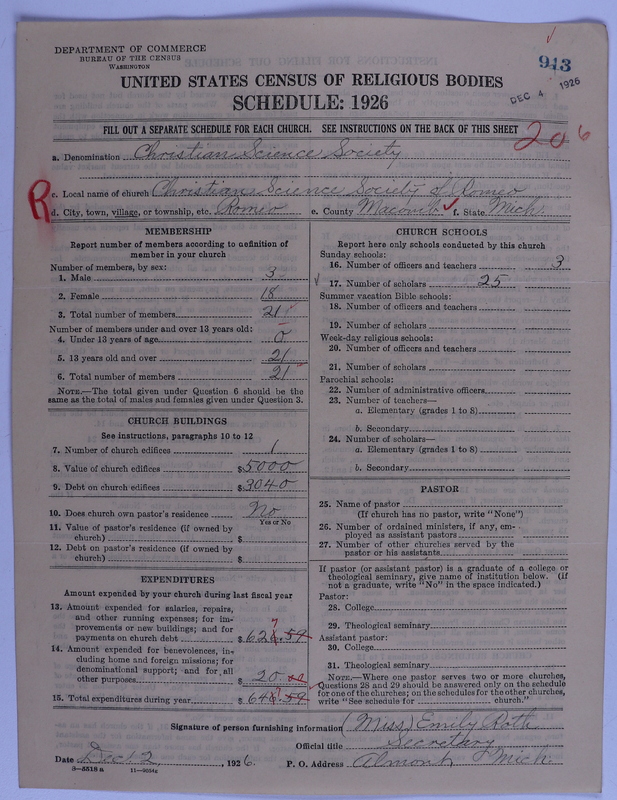 DEPARTMENT OF COMMERCE
BUREAU OF THE CENSUS
WASHINGTON
943
DEC 4 1926
UNITED STATES CENSUS OF RELIGIOUS BODIES
SCHEDULE: 1926
FILL OUT A SEPARATE SCHEDULE FOR EACH CHURCH. SEE INSTRUCTIONS ON THE BACK OF THIS SHEET
206
a. Denomination Christian Science Society
R
c. Local name of church Christian Science Society of Romeo
d. City, town, village, or township, etc. Romeo e. County Macomb f. State Mich.
MEMBERSHIP
Report number of members according to definition of
member in your church
Number of members, by sex:
1. Male 3
2. Female 18
3. Total number of members 21
Number of members under and over 13 years old:
4. Under 13 years of age 0
5. 13 years old and over 21
6. Total number of members 21
NOTE.—The total given under Question 6 should be the
same as the total of males and females given under Question 3.
CHURCH BUILDINGS
See instructions, paragraphs 10 to 12
7. Number of church edifices 1
8. Value of church edifices $5000
9. Debt on church edifices $3040
10. Does church own pastor's residence No
Yes or No
11. Value of pastor's residence (if owned by
church) $
12. Debt on pastor's residence (if owned by
church) $
EXPENDITURES
Amount expended by your church during last fiscal year
13. Amount expended for salaries, repairs,
and other running expenses; for im-
provements or new buildings; and for
payments on church debt $626.59
7
14. Amount expended for benevolences, in-
cluding home and foreign missions; for
denominational support; and for all
other purposes $20
15. Total expenditures during year $646.59
7
CHURCH SCHOOLS
Report here only schools conducted by this church
Sunday schools:
16. Number of officers and teachers 3
17. Number of scholars 25
Summer vacation Bible schools:
18. Number of officers and teachers
19. Number of scholars
Week-day religious schools:
20. Number of officers and teachers
21. Number of scholars
Parochial schools:
22. Number of administrative officers
23. Number of teachers—
a. Elementary (grades 1 to 8)
b. Secondary
24. Number of scholars—
a. Elementary (grades 1 to 8)
b. Secondary
PASTOR
25. Name of pastor
(If church has no pastor, write "None")
26. Number of ordained ministers, if any, em-
ployed as assistant pastors
27. Number of other churches served by the
pastor or his assistants
If pastor (or assistant pastor) is a graduate of a college or
theological seminary, give name of institution below. (if
not a graduate, write "No" in the space indicated.)
Pastor:
28. College
29. Theological seminary
Assistant pastor:
30. College
31. Theological seminary
NOTE.—Where one pastor serves two or more churches,
Questions 28 and 29 should be answered only on the schedule
for one of the churches; on the schedules for the other churches,
write "See schedule for church."
Signature of person furnishing information (Miss) Emily Roth
Official title Secretary
Date Dec. 2, 1926. P. O. Address Almont, Mich.
8—5518 a 11—9034a